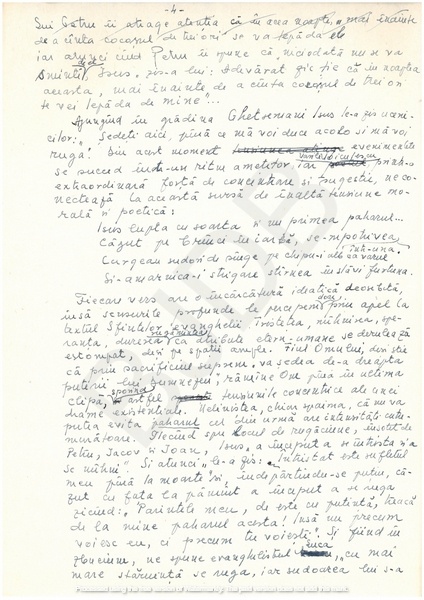 - 4 -
lui Petru îi atrage atenția că în acea noapte, "mai înainte
de a cînta cocoșul de trei ori" se va lepăda de el
iar atunci cînd Petru îi spune că "niciodată nu se va
sminti", Isus zis-a lui: Adevărat zic ție că în noaptea
aceasta, mai înainte de a cînta cocoșul de trei ori
te vei lepăda de mine"...
Ajungînd în grădina Ghetsemani Isus le-a zis uceni-
cilor: "Ședeți aici, pînă ce mă voi duce acolo și mă voi
ruga". Din acest moment evenimentele
se succed într-un ritm amețitor, iar printr-o
extraordinară forță de concentrare și sugestie, ne co-
nectează la această sursă de înaltă tensiune mo-
rală și poetică:
Isus lupta cu soarta și nu primea paharul...
Căzut pe brînci în iarbă, se-mpotrivea întruna.
Curgeau sudori de sînge pe chipu-i alb ca varul
Și-amarnica-i strigare stîrnea în slăvi furtuna.
Fiecare vers are o încărcătură ideatică deosebită,
însă sensurile profunde le percepem doar prin apel la
textul Sfintelor evanghelii. Tristețea, mîhnirea, spe-
ranța, durerea, rugămintea ca atribute etern-umane se derulează
estompat, deși pe spații ample. Fiul Omului, deși știe
că prin sacrificiul suprem, va ședea de-a dreapta
puterii lui Dumnezeu, rămîne Om pînă în ultima
clipă, astfel tensiunile concentrice ale unei
drame existențiale. Neliniștea, chiar spaima, că nu va
putea evita paharul cel din urmă are intensități cutre-
murătoare. Plecînd spre locul de rugăciune, însoțit de
Petru, Iacov și Ioan, Isus "a început a se întrista și a
se mîhni". Și atunci "le-a zis: Întristat este sufletul
meu pînă la moarte" și, îndepărtîndu-se puțin, că-
zut cu fața la pămînt a început a se ruga
zicînd: "Părintele meu, de este cu putință, treacă
de la mine paharul acesta! Însă nu precum
voiesc eu, ci precum tu voiești". Și fiind în
zbucium, ne spune evanghelistul Luca "cu mai
mare stăruință se ruga, iar sudoarea lui s-a